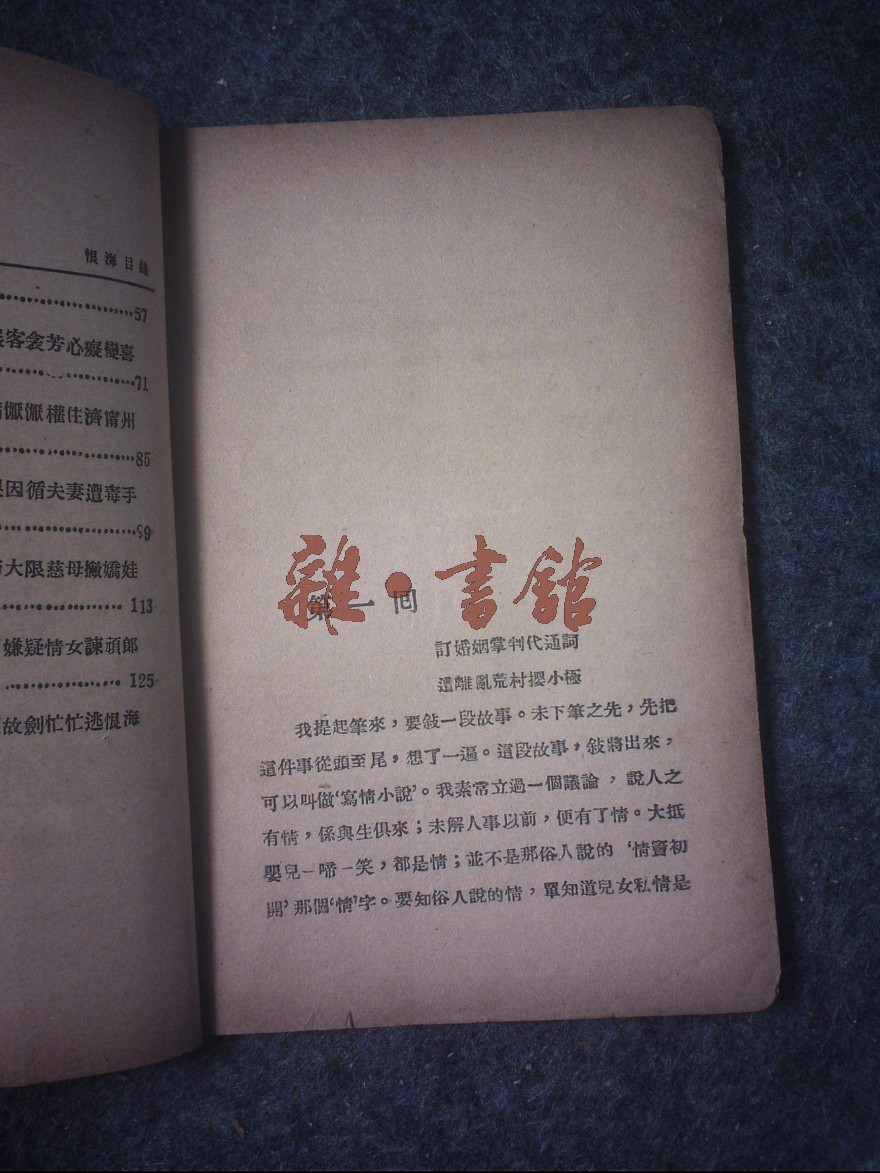 恨海目錄
57
客衾芳心癡變喜
71
懨懨權住濟甯州
85
因循夫妻遭毒手
99
大限慈母撇嬌娃
113
嫌疑情女諫頑郎
125
故劍忙忙逃恨海
雜·書館
第一回
訂婚姻掌判代通詞
遭離亂荒村攖小極
我提起筆來，要敍一段故事。未下筆之先，先把
這件事從頭至尾，想了一遍。這段故事，敍將出來，
可以叫做‘寫情小說’。我素常立過一個議論，說人之
有情，係與生俱來；未解人事以前，便有了情。大抵
嬰兒一啼一笑，都是情；並不是那俗人說的‘情竇初
開’那個‘情’字。要知俗人說的情，單知道兒女私情是